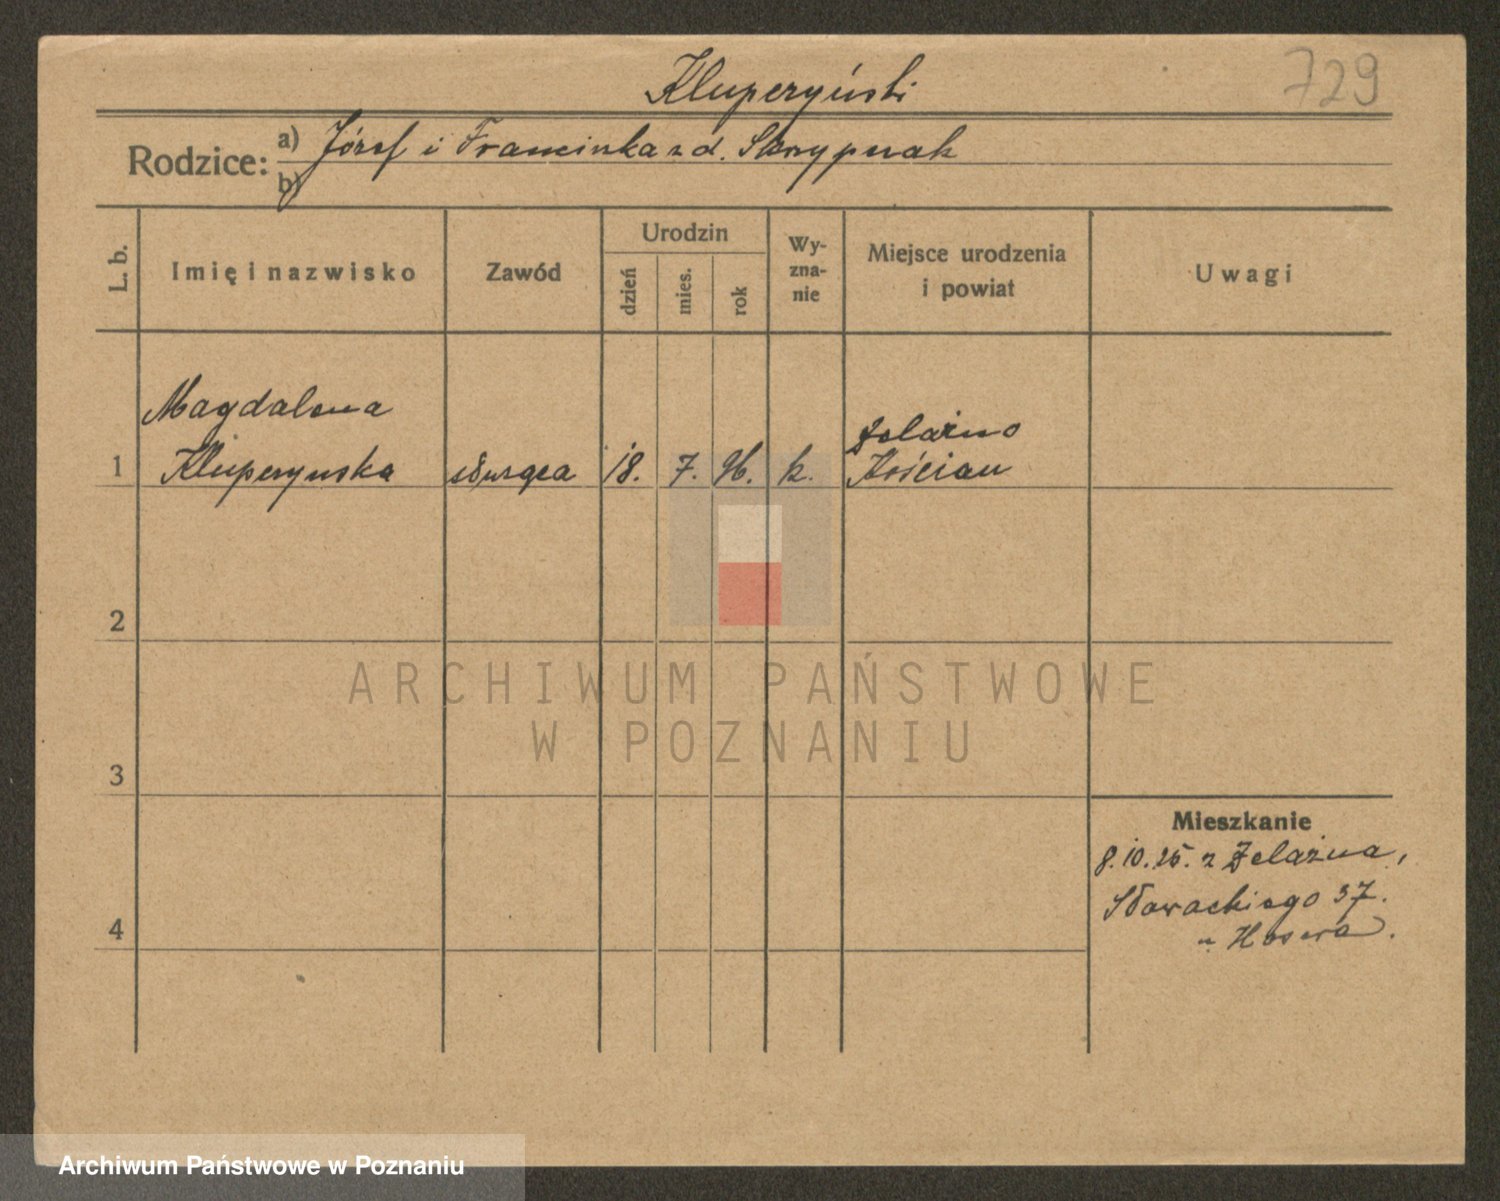 729
Kluperzyński
Rodzice: a) Józef i Franciszka z d. Skrzypczak
b)
L. b. Imię i nazwisko Zawód Urodzin dzień mies. rok Wyznanie Miejsce urodzenia i powiat Uwagi
Magdalena Żelazno
1 Kluperzynska służąca 18. 7. 96. k. Kościan
2
ARCHIWUM PAŃSTWOWE
W POZNANIU
3
Mieszkanie
8.10.25. z Żelazna,
Słowackiego 37.
4
Archiwum Państwowe w Poznaniu